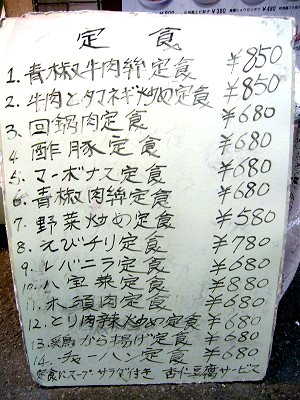 定食
1. 青椒牛肉絲定食 ¥850
2. 牛肉とタマネギ炒め定食 ¥850
3. 回鍋肉定食 ¥680
4 酢豚定食 ¥680
5. マーボナス定食 ¥680
6. 青椒肉絲定食 ¥680
7. 野菜炒め定食 ¥580
8. えびチリ定食 ¥780
9. レバニラ定食 ¥680
10. 八宝菜定食 ¥880
11. 木須肉定食 ¥680
12. とり肉辣炒め定食 ¥680
13. 若鳥から揚げ定食 ¥680
14. チャーハン定食 ¥680
定食にスープサラダ付き 杏仁豆腐サービス